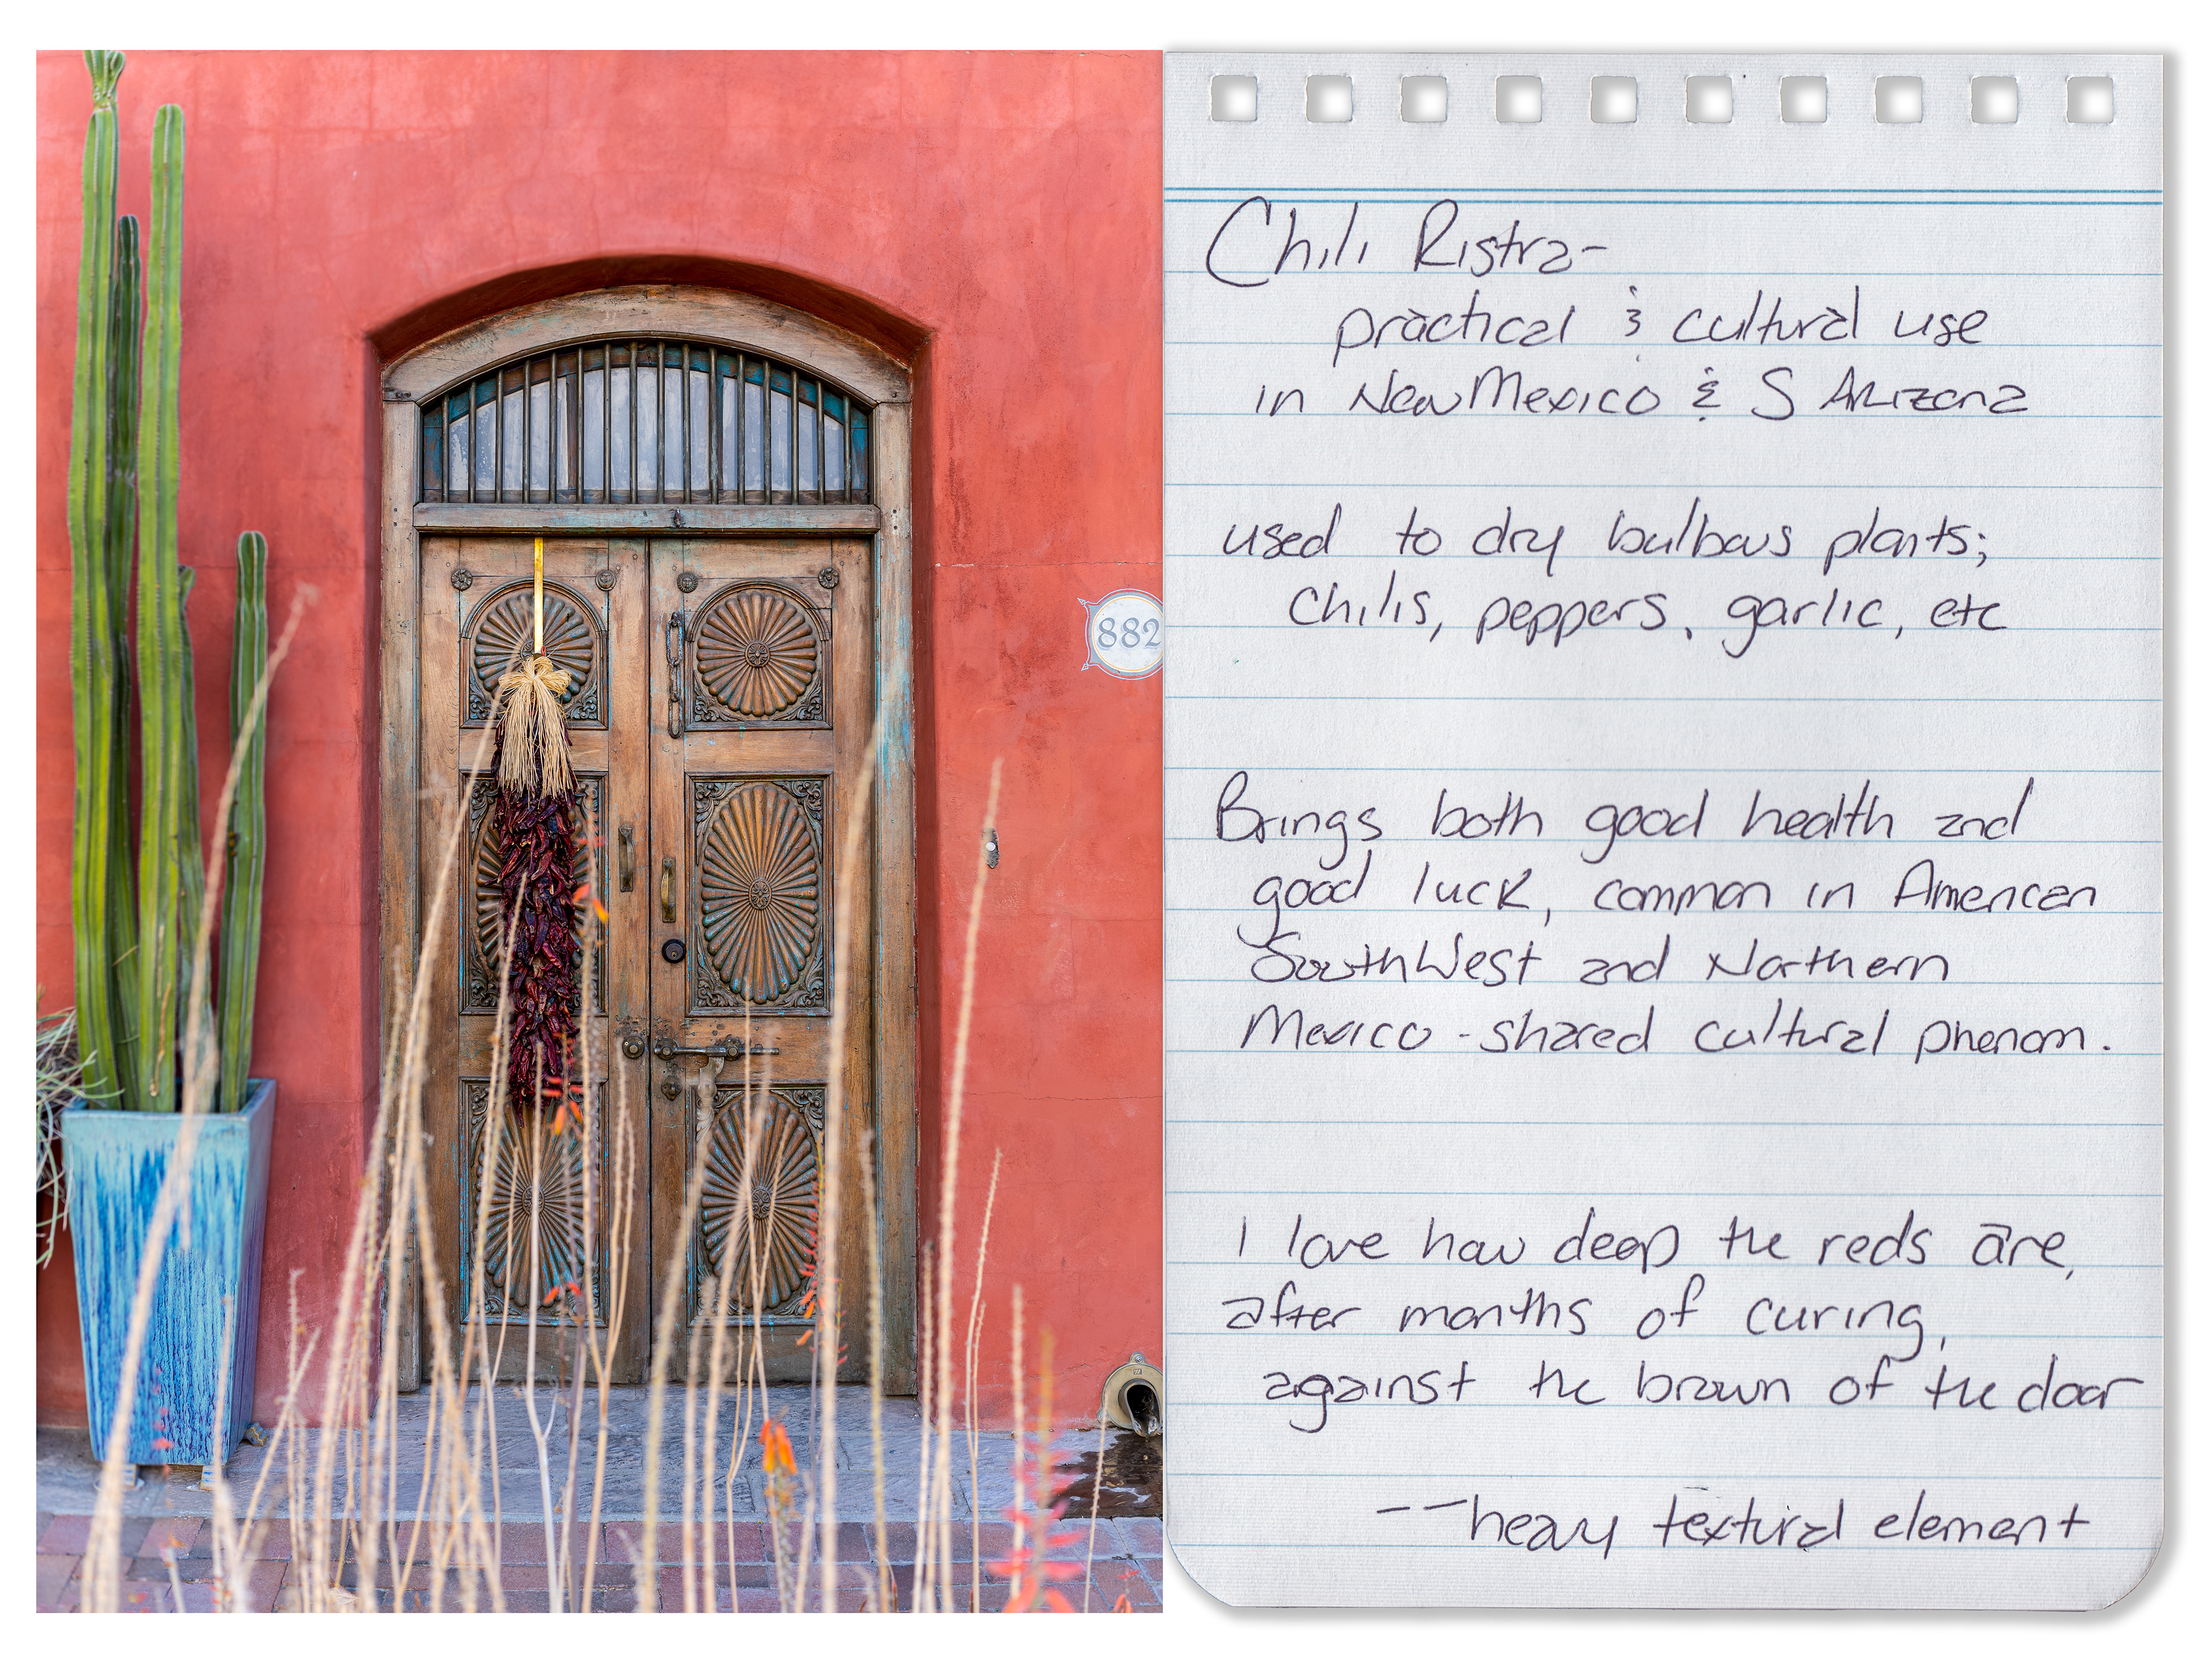 882
Chili Ristra-
practical & cultural use
in New Mexico & S Arizona
used to dry bulbous plants;
chilis, peppers, garlic, etc
Brings both good health and
good luck, common in American
SouthWest and Northern
Mexico - shared cultural phenom.
I love how deep the reds are,
after months of curing,
against the brown of the door
-- heavy textural element